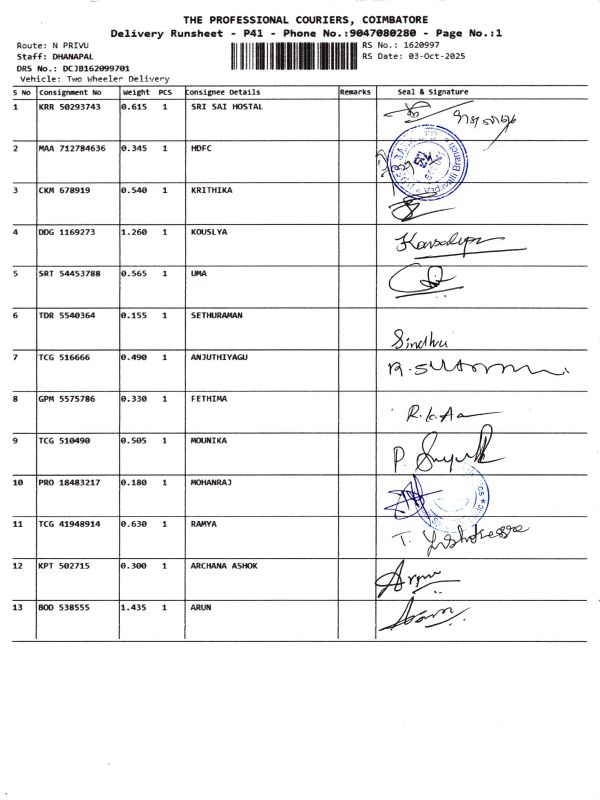 THE PROFESSIONAL COURIERS, COIMBATORE
Delivery Runsheet - P41 - Phone No.:9047080280 - Page No.:1
Route: N PRIVU
RS No.: 1620997
Staff: DHANAPAL
RS Date: 03-Oct-2025
DRS No.: DCJB162099701
Vehicle: Two Wheeler Delivery
S No Consignment No Weight PCS Consignee Details Remarks Seal & Signature
1 KRR 50293743 0.615 1 SRI SAI HOSTAL
2 MAA 712784636 0.345 1 HDFC
3 CKM 678919 0.540 1 KRITHIKA
4 DDG 1169273 1.260 1 KOUSLYA
5 SRT 54453788 0.565 1 UMA
6 TDR 5540364 0.155 1 SETHURAMAN
Sindhu
7 TCG 516666 0.490 1 ANJUTHIYAGU
8 GPM 5575786 0.330 1 FETHIMA
9 TCG 510490 0.505 1 MOUNIKA
10 PRO 18483217 0.180 1 MOHANRAJ
11 TCG 41948914 0.630 1 RAMYA
12 KPT 502715 0.300 1 ARCHANA ASHOK
13 BOD 538555 1.435 1 ARUN